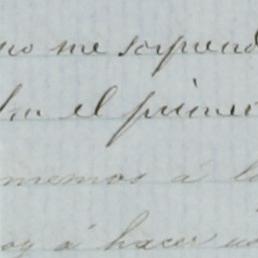 no me sorprend
el primer
memos á l
oy á hacer